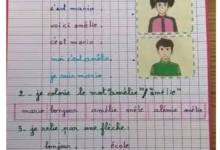 c'est mario.
voici amélie.
c'est mario.
moi c'est amélie.
je suis mario.
2 - je colorie le mot "amélie" / amélie
mario bonjour amélie mélie amélie
3. je relie par une flèche:
bonjour . école